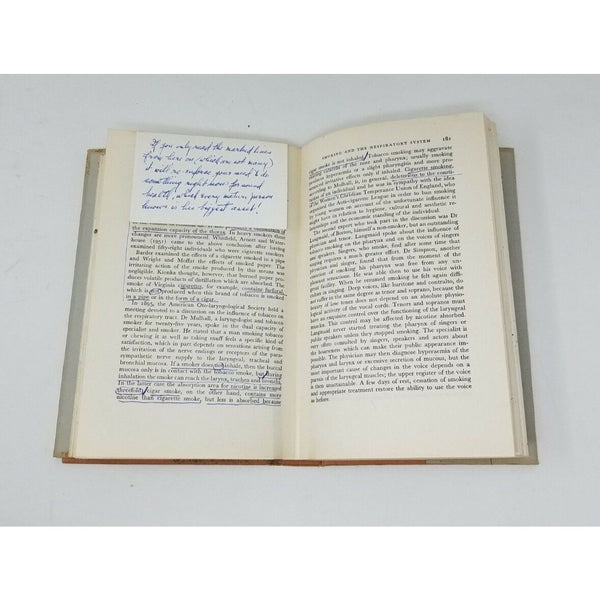 If you only read the marked lines
from here on, (which are not many)
it will re-enforce your need to do
something right now for sound
health, what every mature person
knows is his biggest asset!
the expansion capacity of the thorax. In heavy smokers the
changes are more pronounced. Whitfield, Arnott and Water-
house (1951) came to the above conclusion after having
examined fifty-eight individuals who were cigarette smokers.
Barder examined the effects of a cigarette smoked in a pipe
and Wright and Moffet the effects of smoked paper. The
irritating action of the smoke produced by this means was
negligible. Kionka thought, however, that burning tobacco
produces volatile products of distillation which are absorbed. The
smoke of Virginia cigarettes, for example, contains furfural,
which is produced when this brand of tobacco is smoked
in a pipe or in the form of a cigar.
In 1895, the American Oto-laryngological Society held a
meeting devoted to a discussion on the influence of tobacco on
the respiratory tract. Dr Mulhall, a laryngologist and tobacco
smoker for twenty-five years, spoke in the dual capacity of
specialist and smoker. He stated that a man smoking tobacco
or chewing it as well as taking snuff feels a specific kind of
satisfaction, which in part depends on reflexes arising from
the irritation of the nerve endings or receptors of the para-
sympathetic nerve supply to the laryngeal, tracheal and
bronchial mucosa. If a smoker does not inhale, then the buccal
mucosa only is in contact with the tobacco smoke, but during
inhalation the smoke can reach the larynx, trachea and bronchi.
In the latter case the absorption area for nicotine is increased
threefold. Cigar smoke, on the other hand, contains more
nicotine than cigarette smoke, but less is absorbed because
SMOKING AND THE RESPIRATORY SYSTEM 181
the smoke is not inhaled. Tobacco smoking may aggravate
catarrh of the nose and pharynx; usually smoking
produces slight pharyngitis and more pro-
nounced irritative effects only if inhaled. Cigarette smoking,
according to Mulhall, is, in general, deleterious to the consti-
tution of an individual and he was in sympathy with the idea
of the Women's Christian Temperance Union of England, who
joined the Anti-cigarette League in order to ban smoking
among women on account of the unfortunate influence it
exerted in relation to hygiene, and because of the cultural,
moral and the economic standing of the individual.
The second expert who took part in the discussion was Dr
Langmaid, of Boston, himself a non-smoker, but an outstanding
physician and tenor. Langmaid spoke about the influence of
tobacco smoking on the pharynx and on the voices of singers
and speakers. Singers, who smoke, find after some time that
singing requires a much greater effort. Dr Simpson, another
physician and singer, found that from the moment of the
cessation of smoking his pharynx was free from any un-
pleasant sensations. He was able then to use his voice with
great facility. When he resumed smoking he again found diffi-
culties in singing. Deep voices, like baritone and contralto, do
not suffer in the same degree as tenor and soprano, because the
beauty of low tones does not depend on an absolute physio-
logical activity of the vocal cords. Tenors and sopranos must
have an exquisite control over the functioning of the laryngeal
muscles. This control may be affected by nicotine absorbed.
Langmaid never started treating the pharynx of singers or
public speakers unless they stopped smoking. A specialist is
very often consulted by singers, speakers and actors about
the hoarseness which can make their public appearance im-
possible. The physician may then diagnose hyperaemia of the
pharynx and larynx or excessive secretion of mucus, but the
most important cause of changes in the voice depends on a
paresis of the laryngeal muscles; the upper register of the voice
is then unattainable. A few days of rest, cessation of smoking
and appropriate treatment restore the ability to use the voice
as before.